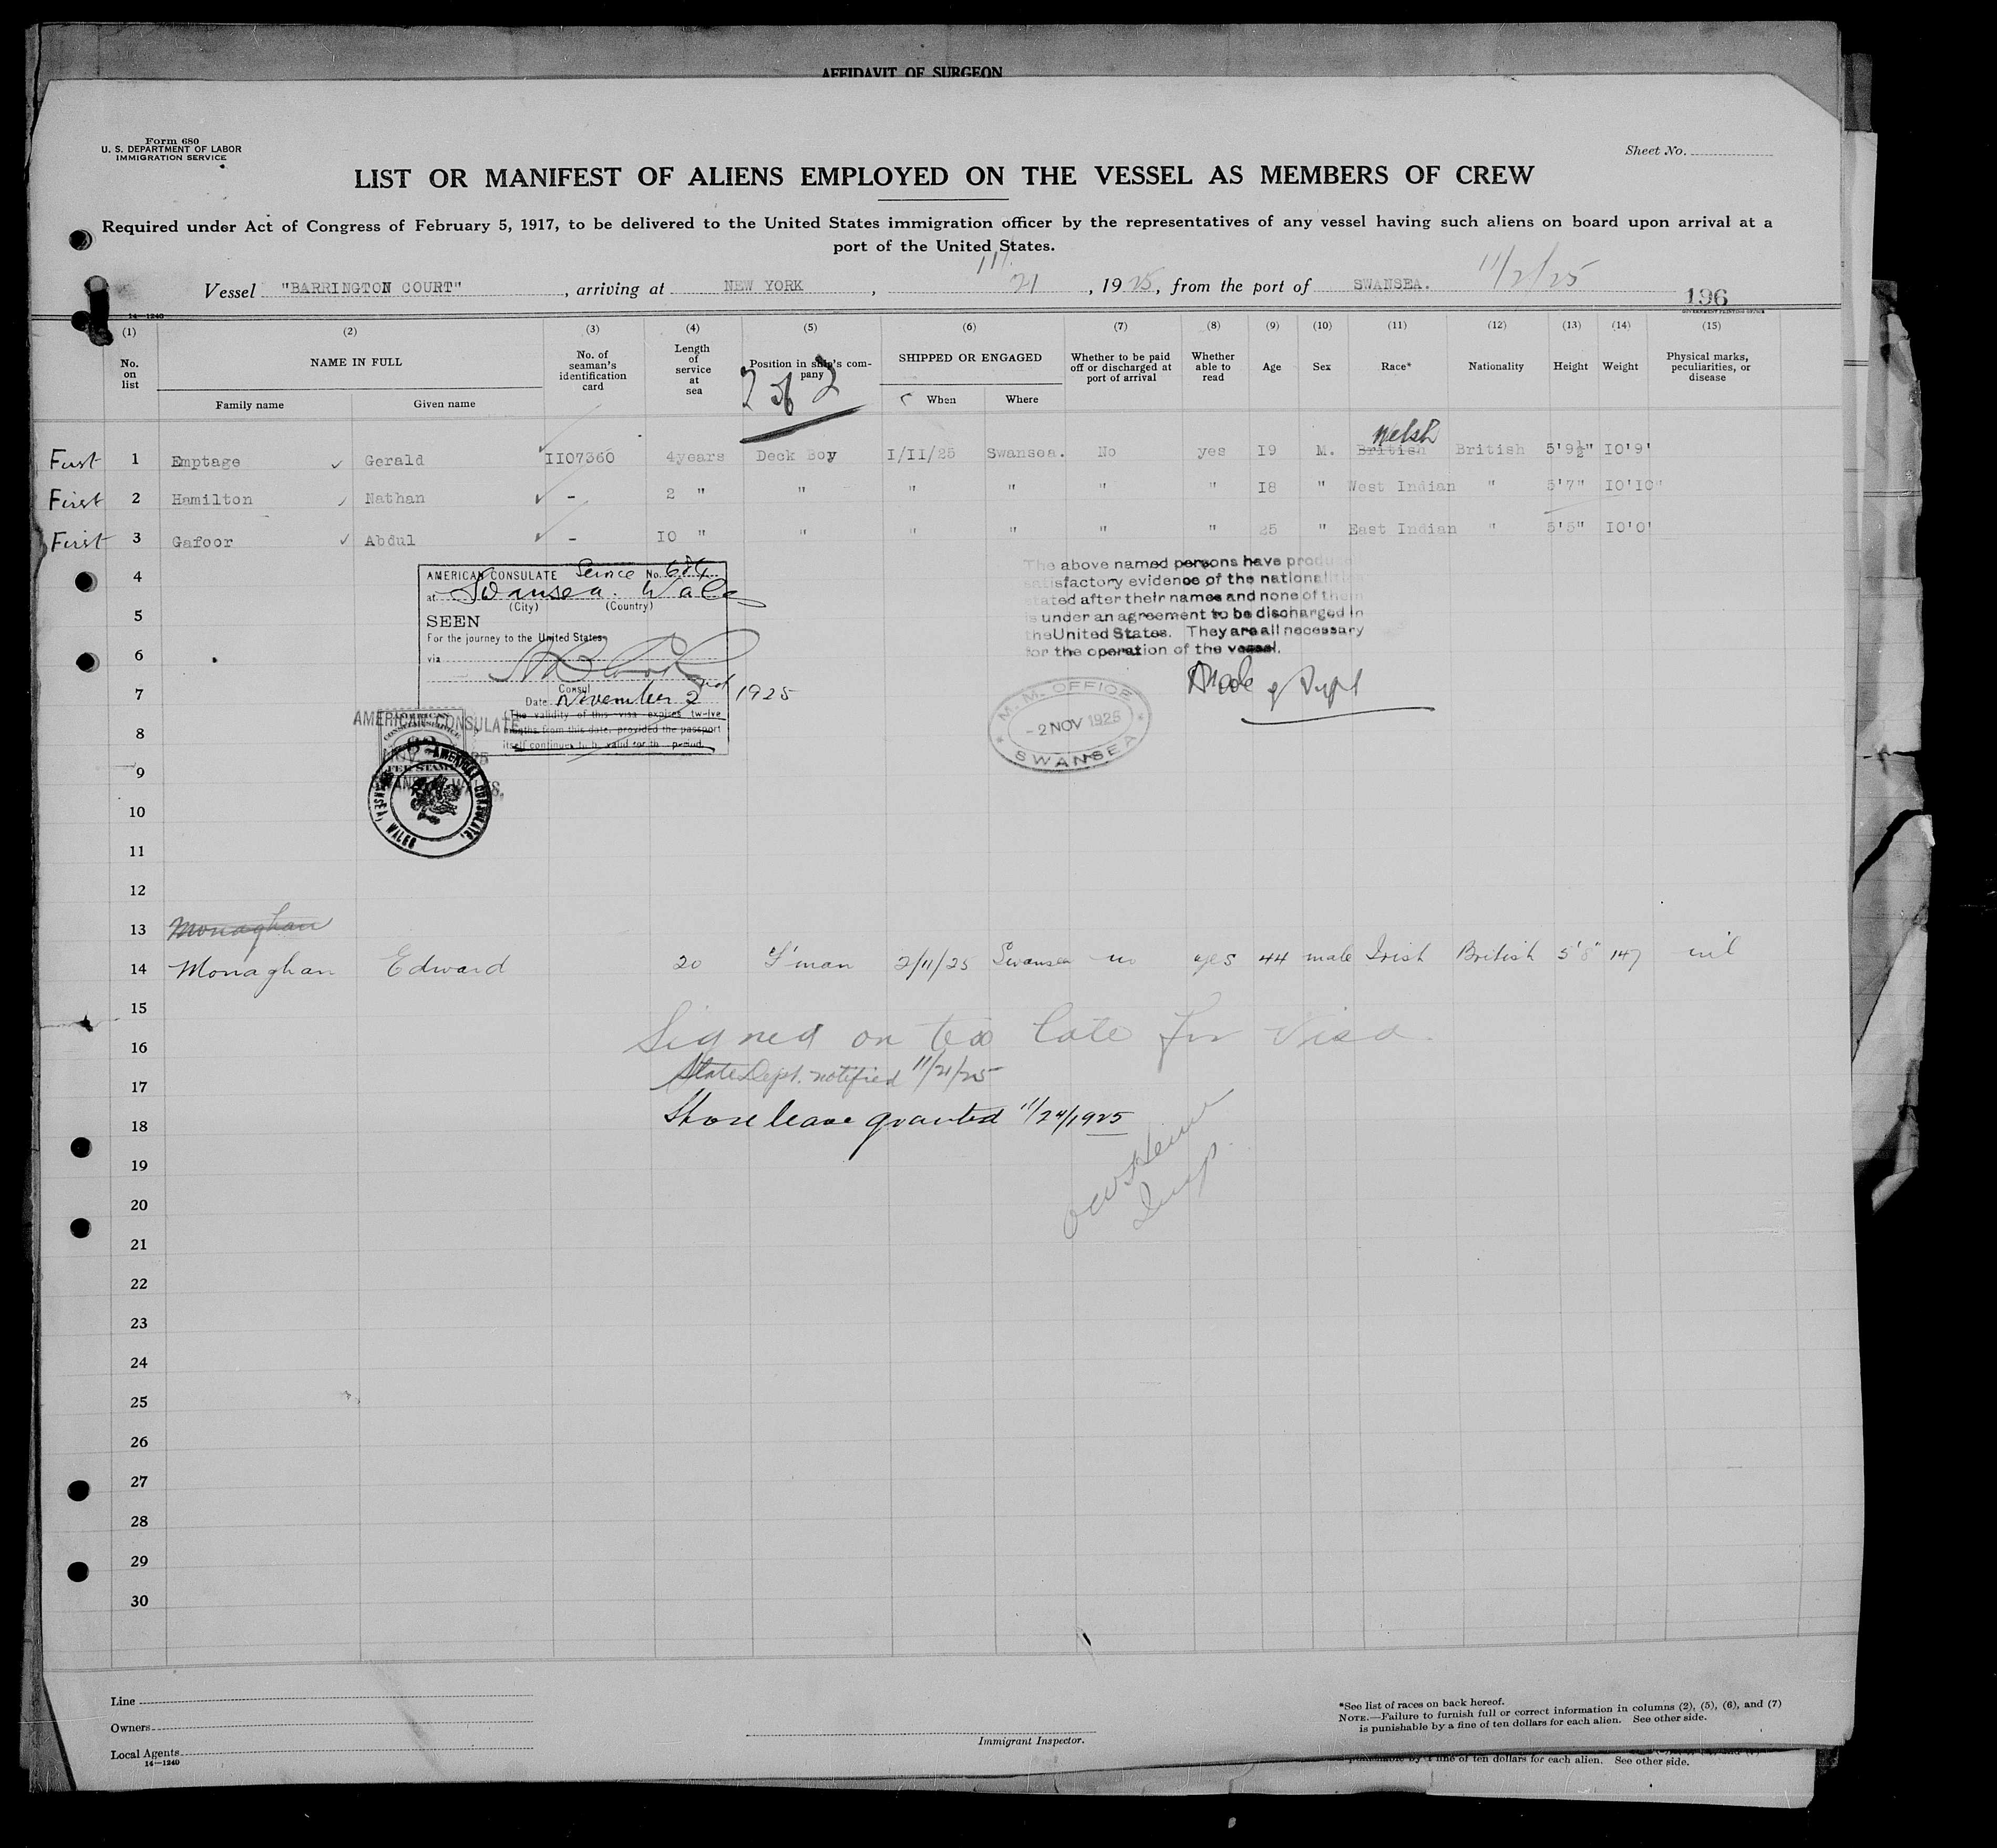 AFFIDAVIT OF SURGEON
Form 680
U. S. DEPARTMENT OF LABOR
IMMIGRATION SERVICE
Sheet No.
LIST OR MANIFEST OF ALIENS EMPLOYED ON THE VESSEL AS MEMBERS OF CREW
Required under Act of Congress of February 5, 1917, to be delivered to the United States immigration officer by the representatives of any vessel having such aliens on board upon arrival at a
port of the United States.
Vessel "BARRINGTON COURT", arriving at NEW YORK, 11/ 21, 1925, from the port of SWANSEA. 11/2/25
196
14—1240
GOVERNMENT PRINTING OFFICE
(1) (2) (3) (4) (5) (6) (7) (8) (9) (10) (11) (12) (13) (14) (15)
No. on list
NAME IN FULL
Family name
Given name
No. of seaman's identification card
Length of service at sea
Position in ship's company
2 of 2
SHIPPED OR ENGAGED
When
Where
Whether to be paid off or discharged at port of arrival
Whether able to read
Age
Sex
Race*
Nationality
Height
Weight
Physical marks, peculiarities, or disease
Welsh
First 1 Emptage Gerald II07360 4years Deck Boy I/II/25 Swansea. No yes I9 M. British British 5'9½" I0'9'
First 2 Hamilton Nathan - 2 " " " " " " I8 " West Indian " 5'7" I0'I0"
First 3 Gafoor Abdul - I0 " " " " " " 25 " East Indian " 5'5" I0'0'
4
5
6
7
8
9
10
11
12
AMERICAN CONSULATE Service No. 684
at Swansea. Wales
(City) (Country)
SEEN
For the journey to the United States
via
Consul
Date November 2nd 1925
The validity of this visa expires twelve
months from this date, provided the passport
itself continues to be valid for that period.
AMERICAN CONSULATE
AMERICAN CONSULATE, SWANSEA, WALES
The above named persons have produced
satisfactory evidence of the nationalities
stated after their names and none of them
is under an agreement to be discharged in
the United States. They are all necessary
for the operation of the vessel.
M. M. OFFICE
-2 NOV 1925
SWANSEA
13 Monaghan
14 Monaghan Edward 20 F'man 2/11/25 Swansea no yes 44 male Irish British 5'8" 147 nil
15
Signed on too late for Visa.
16
State Dept. notified 11/21/25
17
Shore leave granted 11/24/1925
18
Insp.
19
20
21
22
23
24
25
26
27
28
29
30
Line
Owners
Local Agents
14—1240
Immigrant Inspector.
*See list of races on back hereof.
NOTE.—Failure to furnish full or correct information in columns (2), (5), (6), and (7)
is punishable by a fine of ten dollars for each alien. See other side.
punishable by a fine of ten dollars for each alien. See other side.